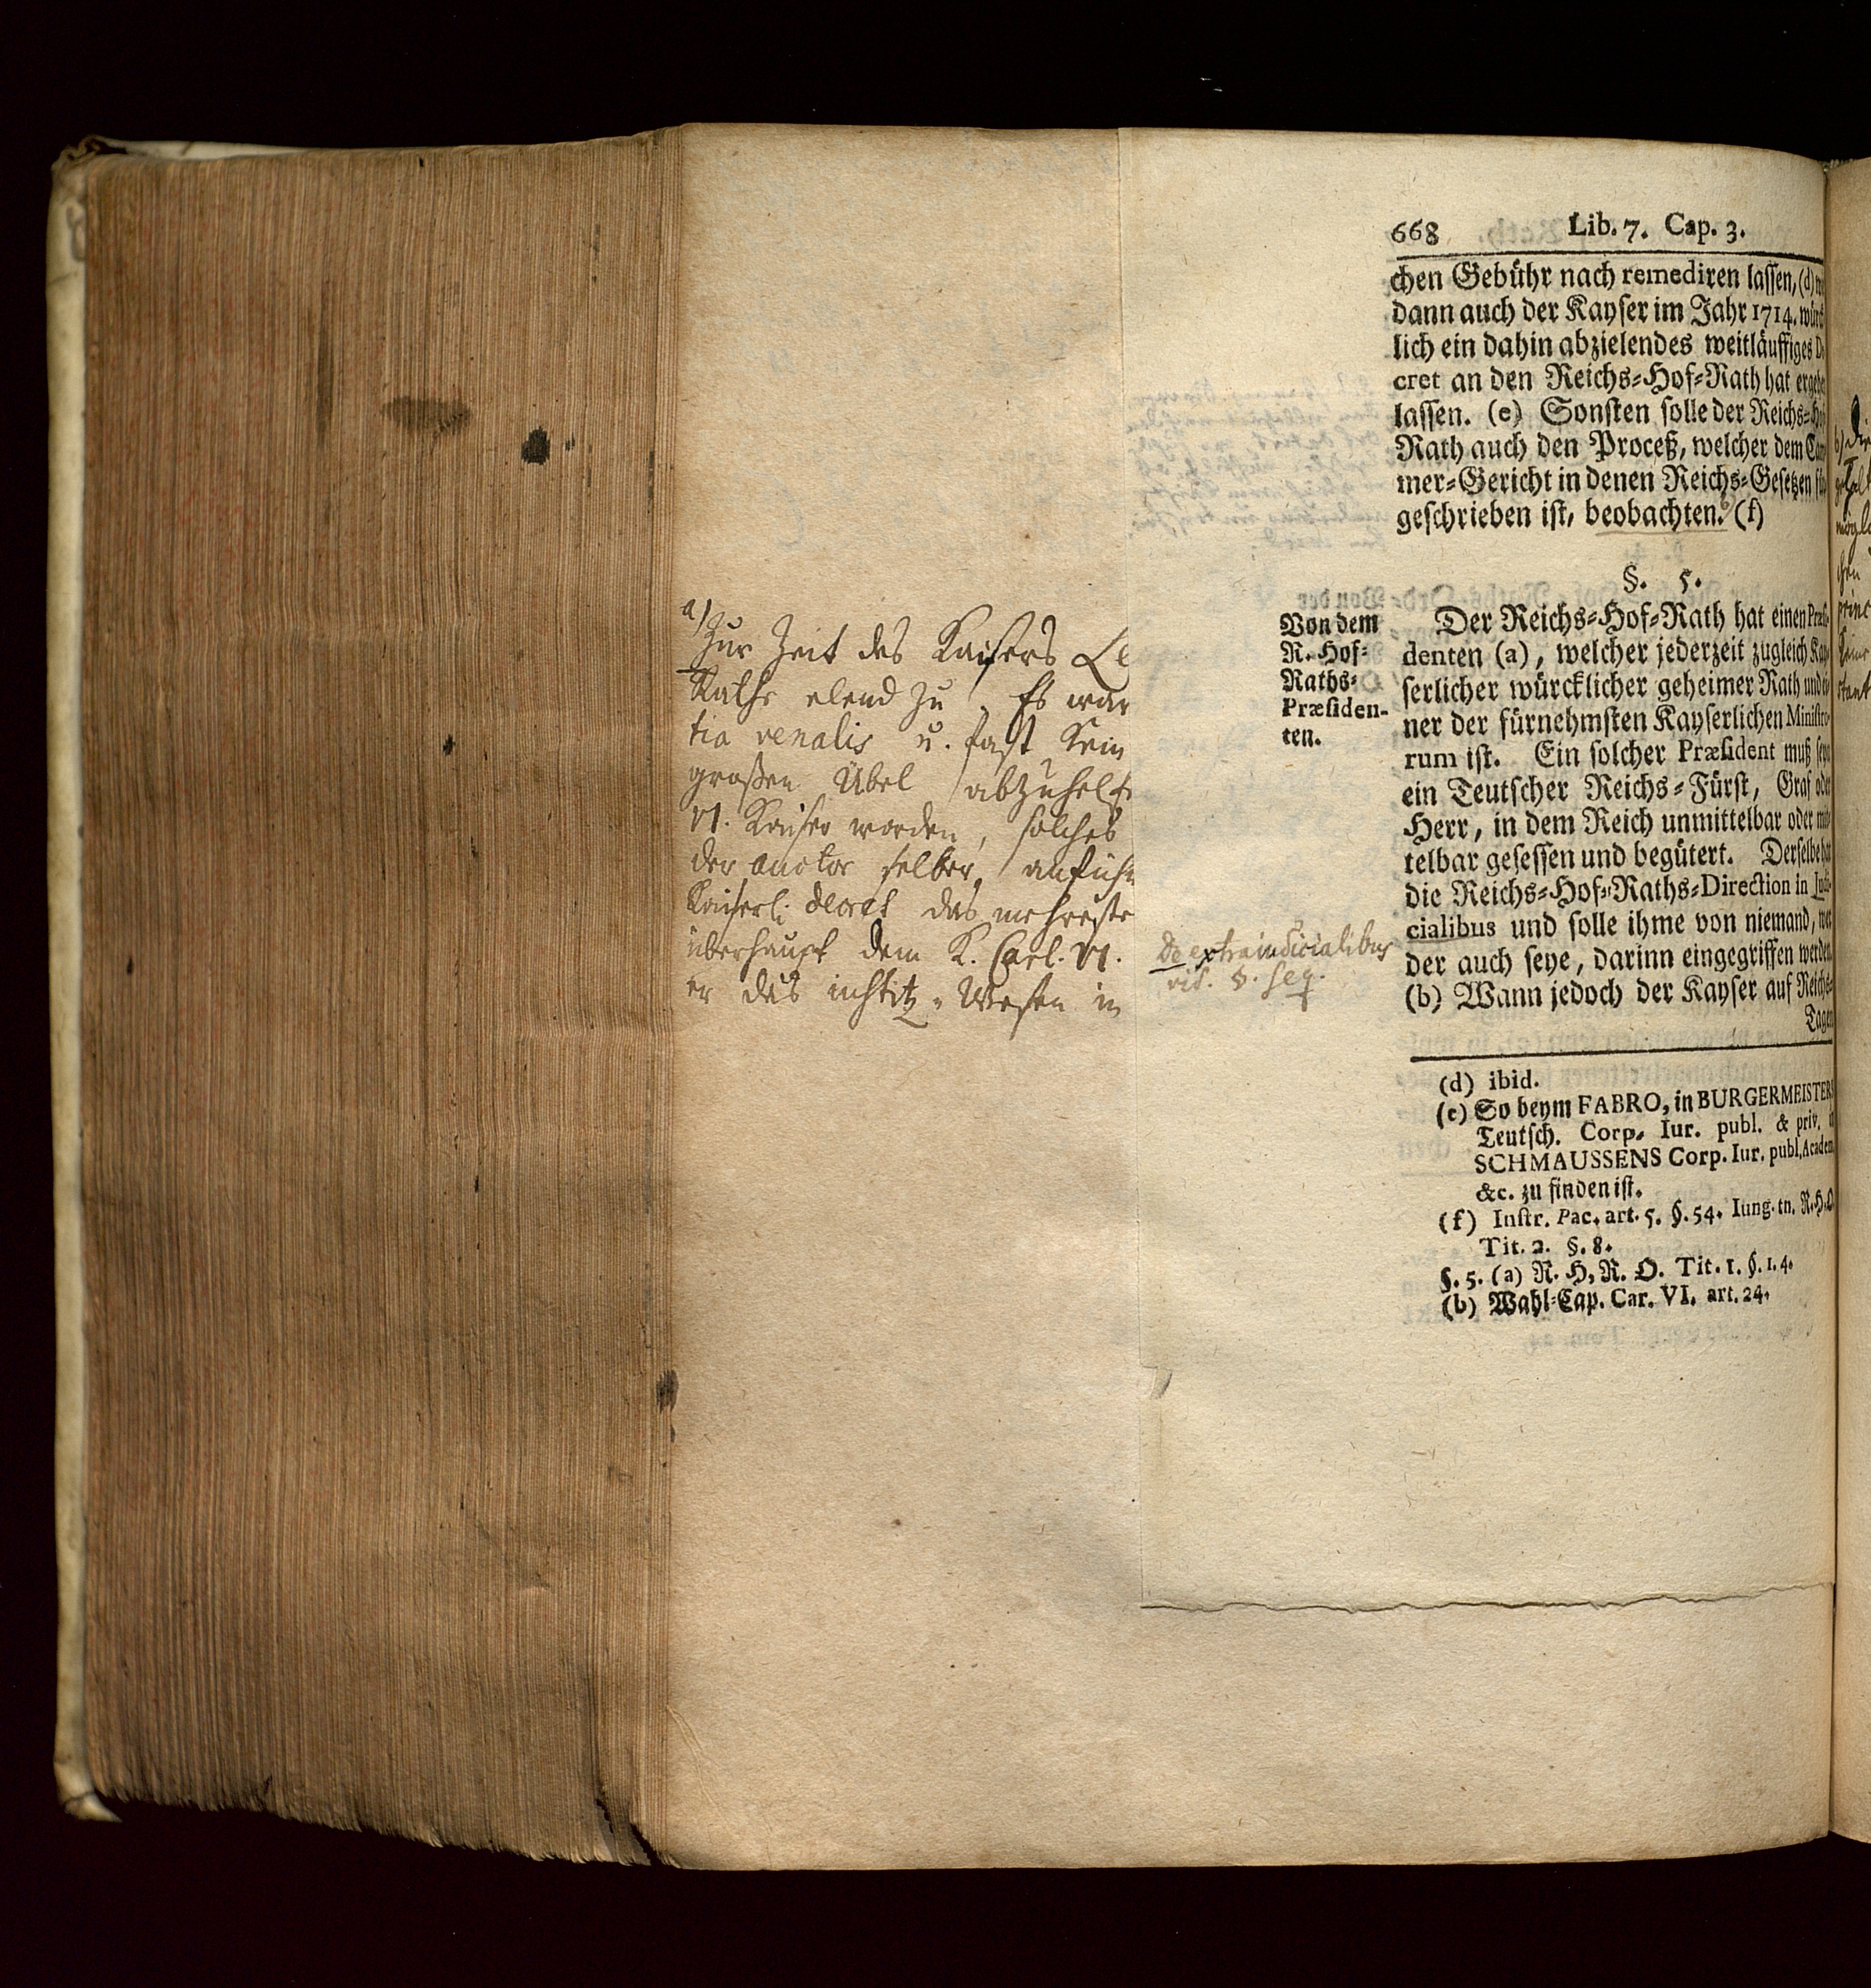 a) Zur Zeit des Kaisers Le
Raths elend zu. Es war
tia venalis u. fast kein
großen Übel abzuhelf
VI. Kaiser worden, solches
der auctor selber anführ
Kaiserl. decret das mehreste
überhaupt dem K. Carl. VI.
er das iustitz-Wesen in
De extraiudicialibus
vid. §. seq.
668 Lib. 7. Cap. 3.
chen Gebühr nach remediren lassen, (d)
dann auch der Kayser im Jahr 1714. würck
lich ein dahin abzielendes weitläuffiges De
cret an den Reichs-Hof-Rath hat ergehe
lassen. (e) Sonsten solle der Reichs-Ho
Rath auch den Proceß, welcher dem Cam
mer-Gericht in denen Reichs-Gesetzen für
geschrieben ist, beobachten. (f)
§. 5.
Von dem
R. Hof-
Raths-
Præsiden-
ten.
Der Reichs-Hof-Rath hat einen Præsi
denten (a), welcher jederzeit zugleich Kay
serlicher würcklicher geheimer Rath und ei
ner der fürnehmsten Kayserlichen Ministro
rum ist. Ein solcher Præsident muß seyn
ein Teutscher Reichs-Fürst, Graf oder
Herr, in dem Reich unmittelbar oder mit
telbar gesessen und begütert. Derselbe hat
die Reichs-Hof-Raths-Direction in Judi
cialibus und solle ihme von niemand, wer
der auch seye, darinn eingegriffen werden.
(b) Wann jedoch der Kayser auf Reichs-
Tagen
(d) ibid.
(e) So beym FABRO, in BURGERMEISTERS
Teutsch. Corp. Iur. publ. & priv. in
SCHMAUSSENS Corp. Iur. publ. Academ.
&c. zu finden ist.
(f) Instr. Pac. art. 5. §. 54. Iung. tn. R. H. O.
Tit. 2. §. 8.
§. 5. (a) R. H. R. O. Tit. 1. §. 1. 4.
(b) Wahl-Cap. Car. VI. art. 24.